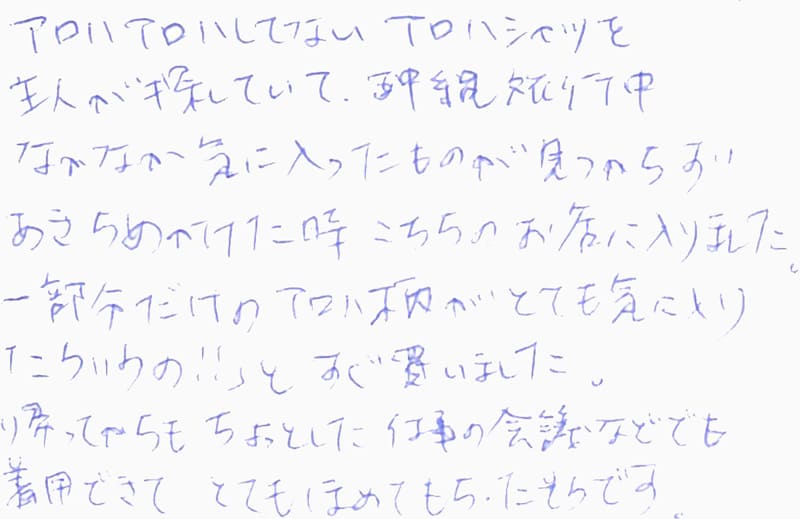 アロハアロハしてない アロハシャツを
主人が探していて、沖縄旅行中
なかなか気に入ったものが見つからずい
あきらめかけた時 こちらのお店に入りました。
一部分だけの アロハ柄がとても気に入り
「こういうの!!」と すぐ買いました。
帰ってからも ちょっとした 仕事の会議などでも
着用できて とてもほめてもらったそうです。